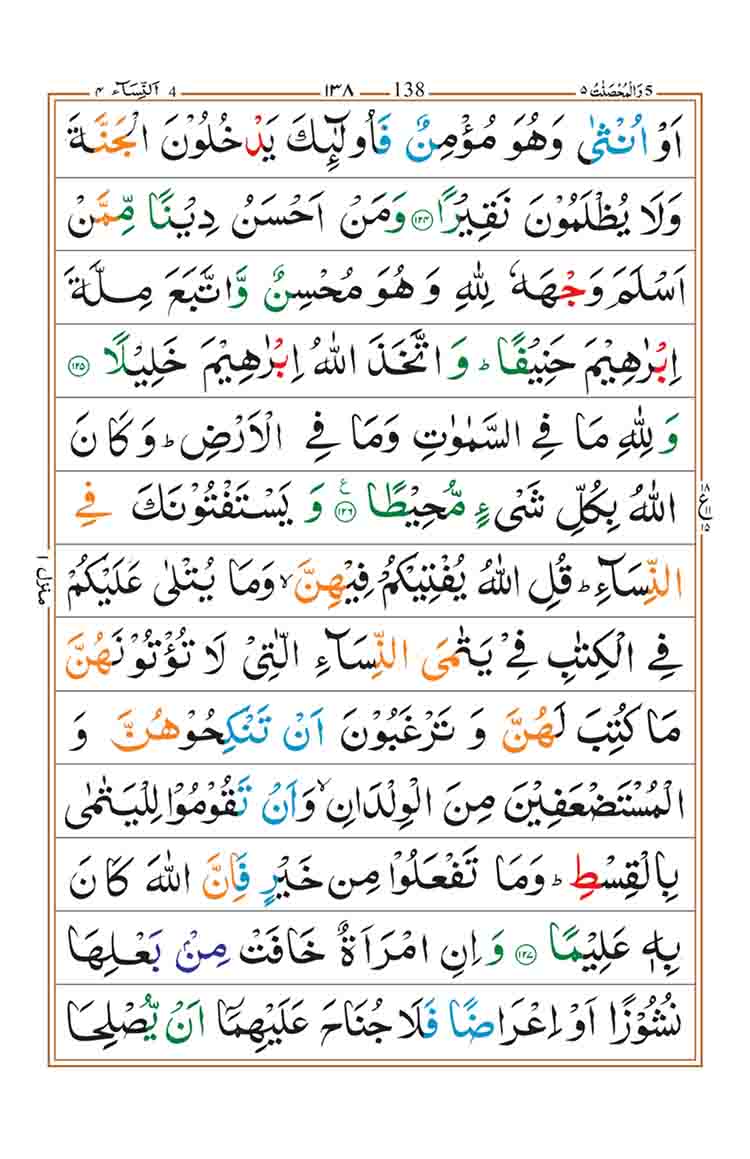 وَالْمُحْصَنٰتُ ٥ 5 138 ١٣٨ 4 اَلنِّسَآء ٤
اَوْ اُنْثٰى وَهُوَ مُؤْمِنٌ فَاُولٰٓئِكَ يَدْخُلُوْنَ الْجَنَّةَ
وَلَا يُظْلَمُوْنَ نَقِيْرًا ١٢٤ وَمَنْ اَحْسَنُ دِيْنًا مِّمَّنْ
اَسْلَمَ وَجْهَهٗ لِلّٰهِ وَهُوَ مُحْسِنٌ وَّاتَّبَعَ مِلَّةَ
اِبْرٰهِيْمَ حَنِيْفًا ؕ وَاتَّخَذَ اللّٰهُ اِبْرٰهِيْمَ خَلِيْلًا ١٢٥
وَلِلّٰهِ مَا فِى السَّمٰوٰتِ وَمَا فِى الْاَرْضِ ؕ وَكَانَ
اللّٰهُ بِكُلِّ شَىْءٍ مُّحِيْطًا ١٢٦ ع وَيَسْتَفْتُوْنَكَ فِى
١٨ ع ١١ ١٥
النِّسَآءِ ؕ قُلِ اللّٰهُ يُفْتِيْكُمْ فِيْهِنَّ ۙ وَمَا يُتْلٰى عَلَيْكُمْ
منزل ١
فِى الْكِتٰبِ فِىْ يَتٰمَى النِّسَآءِ الّٰتِىْ لَا تُؤْتُوْنَهُنَّ
مَا كُتِبَ لَهُنَّ وَتَرْغَبُوْنَ اَنْ تَنْكِحُوْهُنَّ وَ
الْمُسْتَضْعَفِيْنَ مِنَ الْوِلْدَانِ ۙ وَاَنْ تَقُوْمُوْا لِلْيَتٰمٰى
بِالْقِسْطِ ؕ وَمَا تَفْعَلُوْا مِنْ خَيْرٍ فَاِنَّ اللّٰهَ كَانَ
بِهٖ عَلِيْمًا ١٢٧ وَاِنِ امْرَاَةٌ خَافَتْ مِنْۢ بَعْلِهَا
نُشُوْزًا اَوْ اِعْرَاضًا فَلَا جُنَاحَ عَلَيْهِمَاۤ اَنْ يُّصْلِحَا